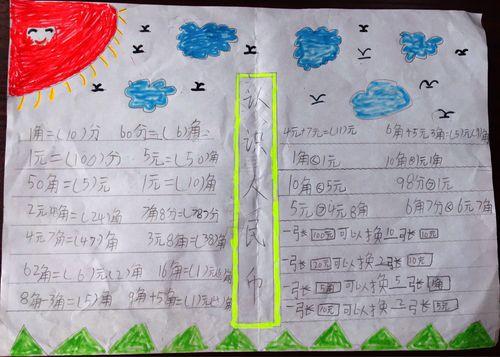 认识人民币
1角=(10)分 60分=(6)角
1元=(100)分 5元=(50)角
50角=(5)元 1元=(10)角
2元4角=(24)角 7角8分=(78)分
4元7角=(47)角 3元8角=(38)角
62角=(6)元(2)角 16角=(1)元(6)角
8角-3角=(5)角 9角+5角=(1)元(4)角
4元+7元=(11)元 6角+5元3角=(5)元(9)角
1角<1元 10角=1元
10角<5元 98分<1元
5元>4元8角 6角7分<6元7角
一张100元可以换10张10元
一张20元可以换2张10元
一张5角可以换5张1角
一张10元可以换2张5元